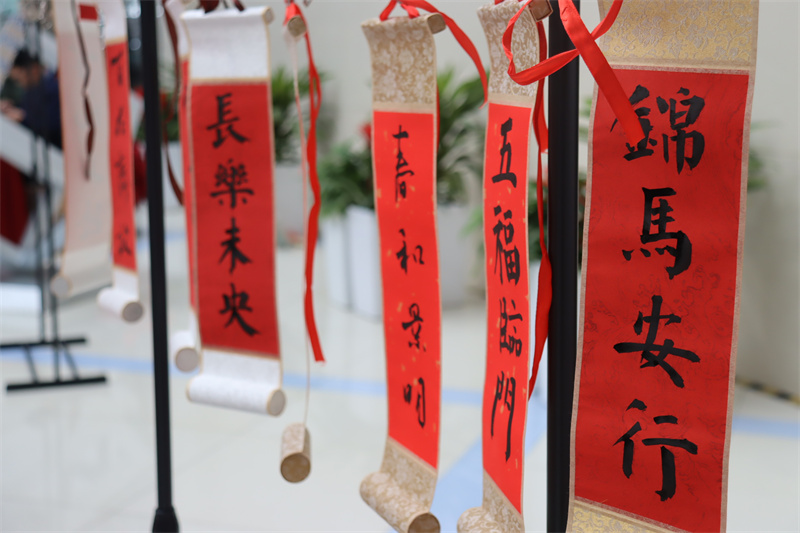 長樂未央
春和景明
五福臨門
錦馬安行